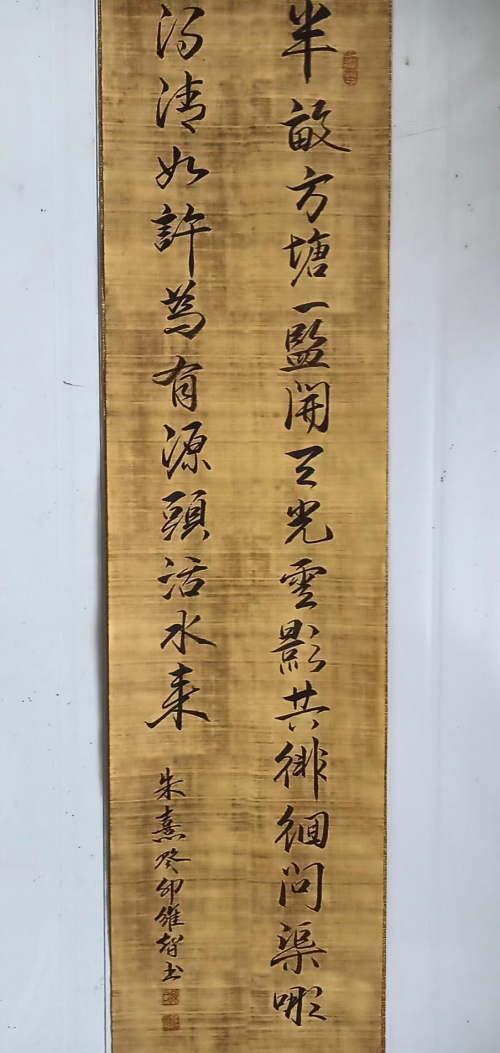 半畝方塘一監開天光雲影共徘徊問渠哪
得清如許為有源頭活水来
朱熹癸卯維智书